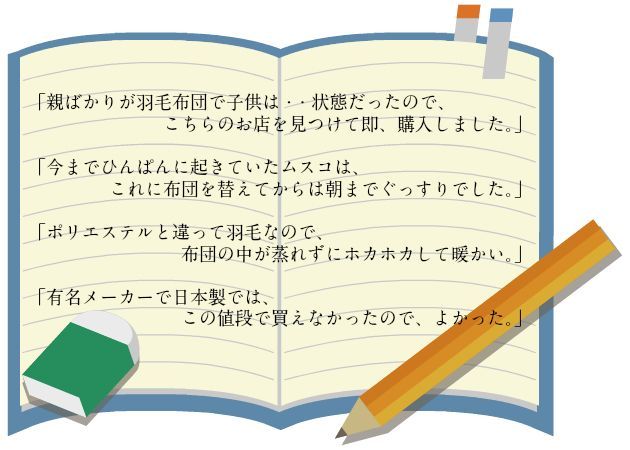 「親ばかりが羽毛布団で子供は‥状態だったので、
こちらのお店を見つけて即、購入しました。」
「今までひんぱんに起きていたムスコは、
これに布団を替えてからは朝までぐっすりでした。」
「ポリエステルと違って羽毛なので、
布団の中が蒸れずにホカホカして暖かい。」
「有名メーカーで日本製では、
この値段で買えなかったので、よかった。」